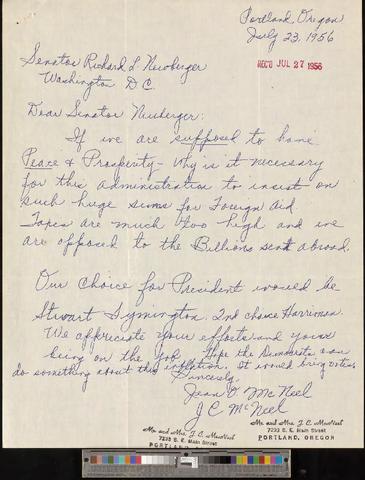 Portland, Oregon
July 23, 1956
REC'D JUL 27 1956
Senator Richard L. Neuberger
Washington D C.
Dear Senator Neuberger:
If we are supposed to have
Peace & Prosperity - Why is it necessary
for this administration to insist on
such huge sums for Foreign Aid
Taxes are much too high and we
are opposed to the Billions sent abroad.
Our Choice for President would be
Stuart Symington. 2nd choice Harriman.
We appreciate your efforts and your
being on the job. Hope the Democrats can
do something about this inflation. It would bring votes.
Sincerely,
Jean O. McNeel
J C McNeel
Mr. and Mrs. J. C. MacNeel
7233 S. E. Main Street
PORTLAND, OREGON
Mr. and Mrs. J. C. MacNeel
7233 S. E. Main Street
PORTLAND, OREGON